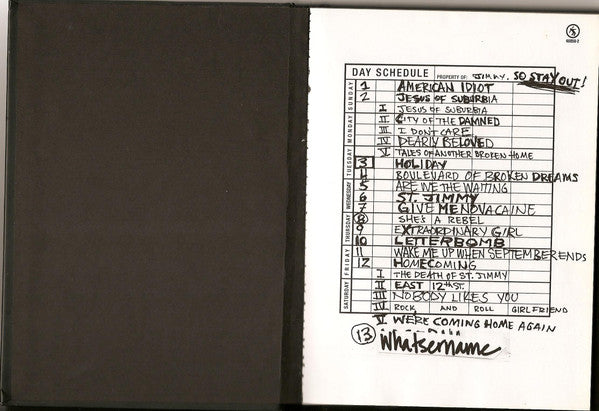 DAY SCHEDULE PROPERTY OF: JIMMY. SO STAY OUT!
SUNDAY
MONDAY
TUESDAY
WEDNESDAY
THURSDAY
FRIDAY
SATURDAY
1 AMERICAN IDIOT
2 JESUS OF SUBURBIA
I JESUS OF SUBURBIA
II CITY OF THE DAMNED
III I DON'T CARE
IV DEARLY BELOVED
V TALES OF ANOTHER BROKEN HOME
3 HOLIDAY
4 BOULEVARD OF BROKEN DREAMS
5 ARE WE THE WAITING
6 ST. JIMMY
7 GIVE ME NOVACAINE
8 SHE'S A REBEL
9 EXTRAORDINARY GIRL
10 LETTERBOMB
11 WAKE ME UP WHEN SEPTEMBER ENDS
12 HOMECOMING
I THE DEATH OF ST. JIMMY
II EAST 12TH ST.
III NOBODY LIKES YOU
IV ROCK AND ROLL GIRLFRIEND
V WE'RE COMING HOME AGAIN
13 Whatsername